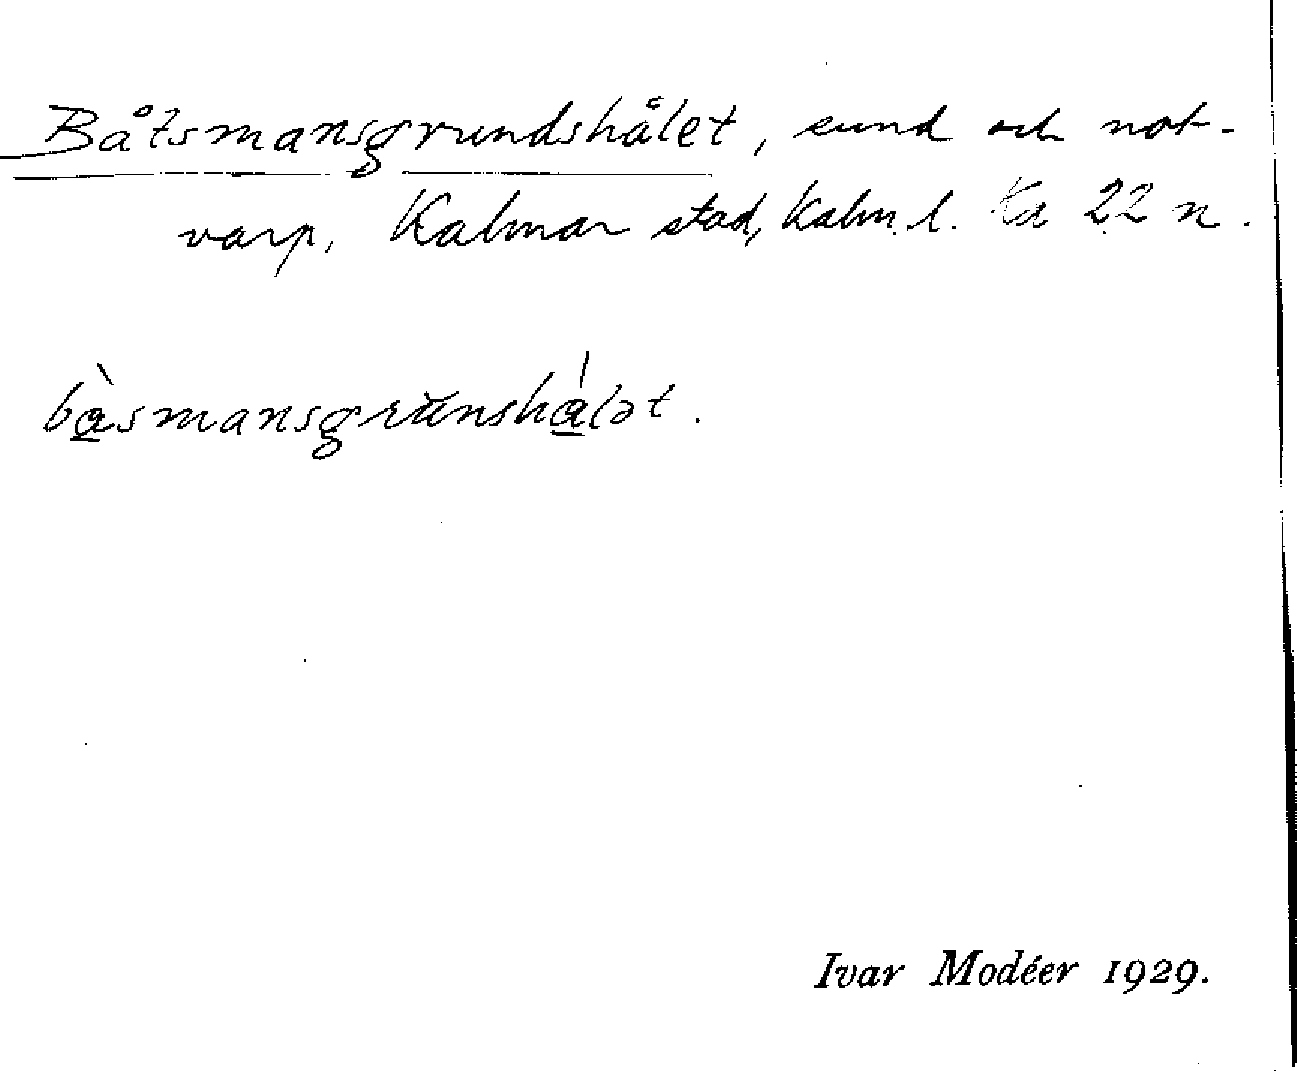 Båtsmansgrundshålet, sund och not-
varp, Kalmar stad, Kalm. l. Ka 22 n.
bàsmansgrŭnshálət.
Ivar Modéer 1929.